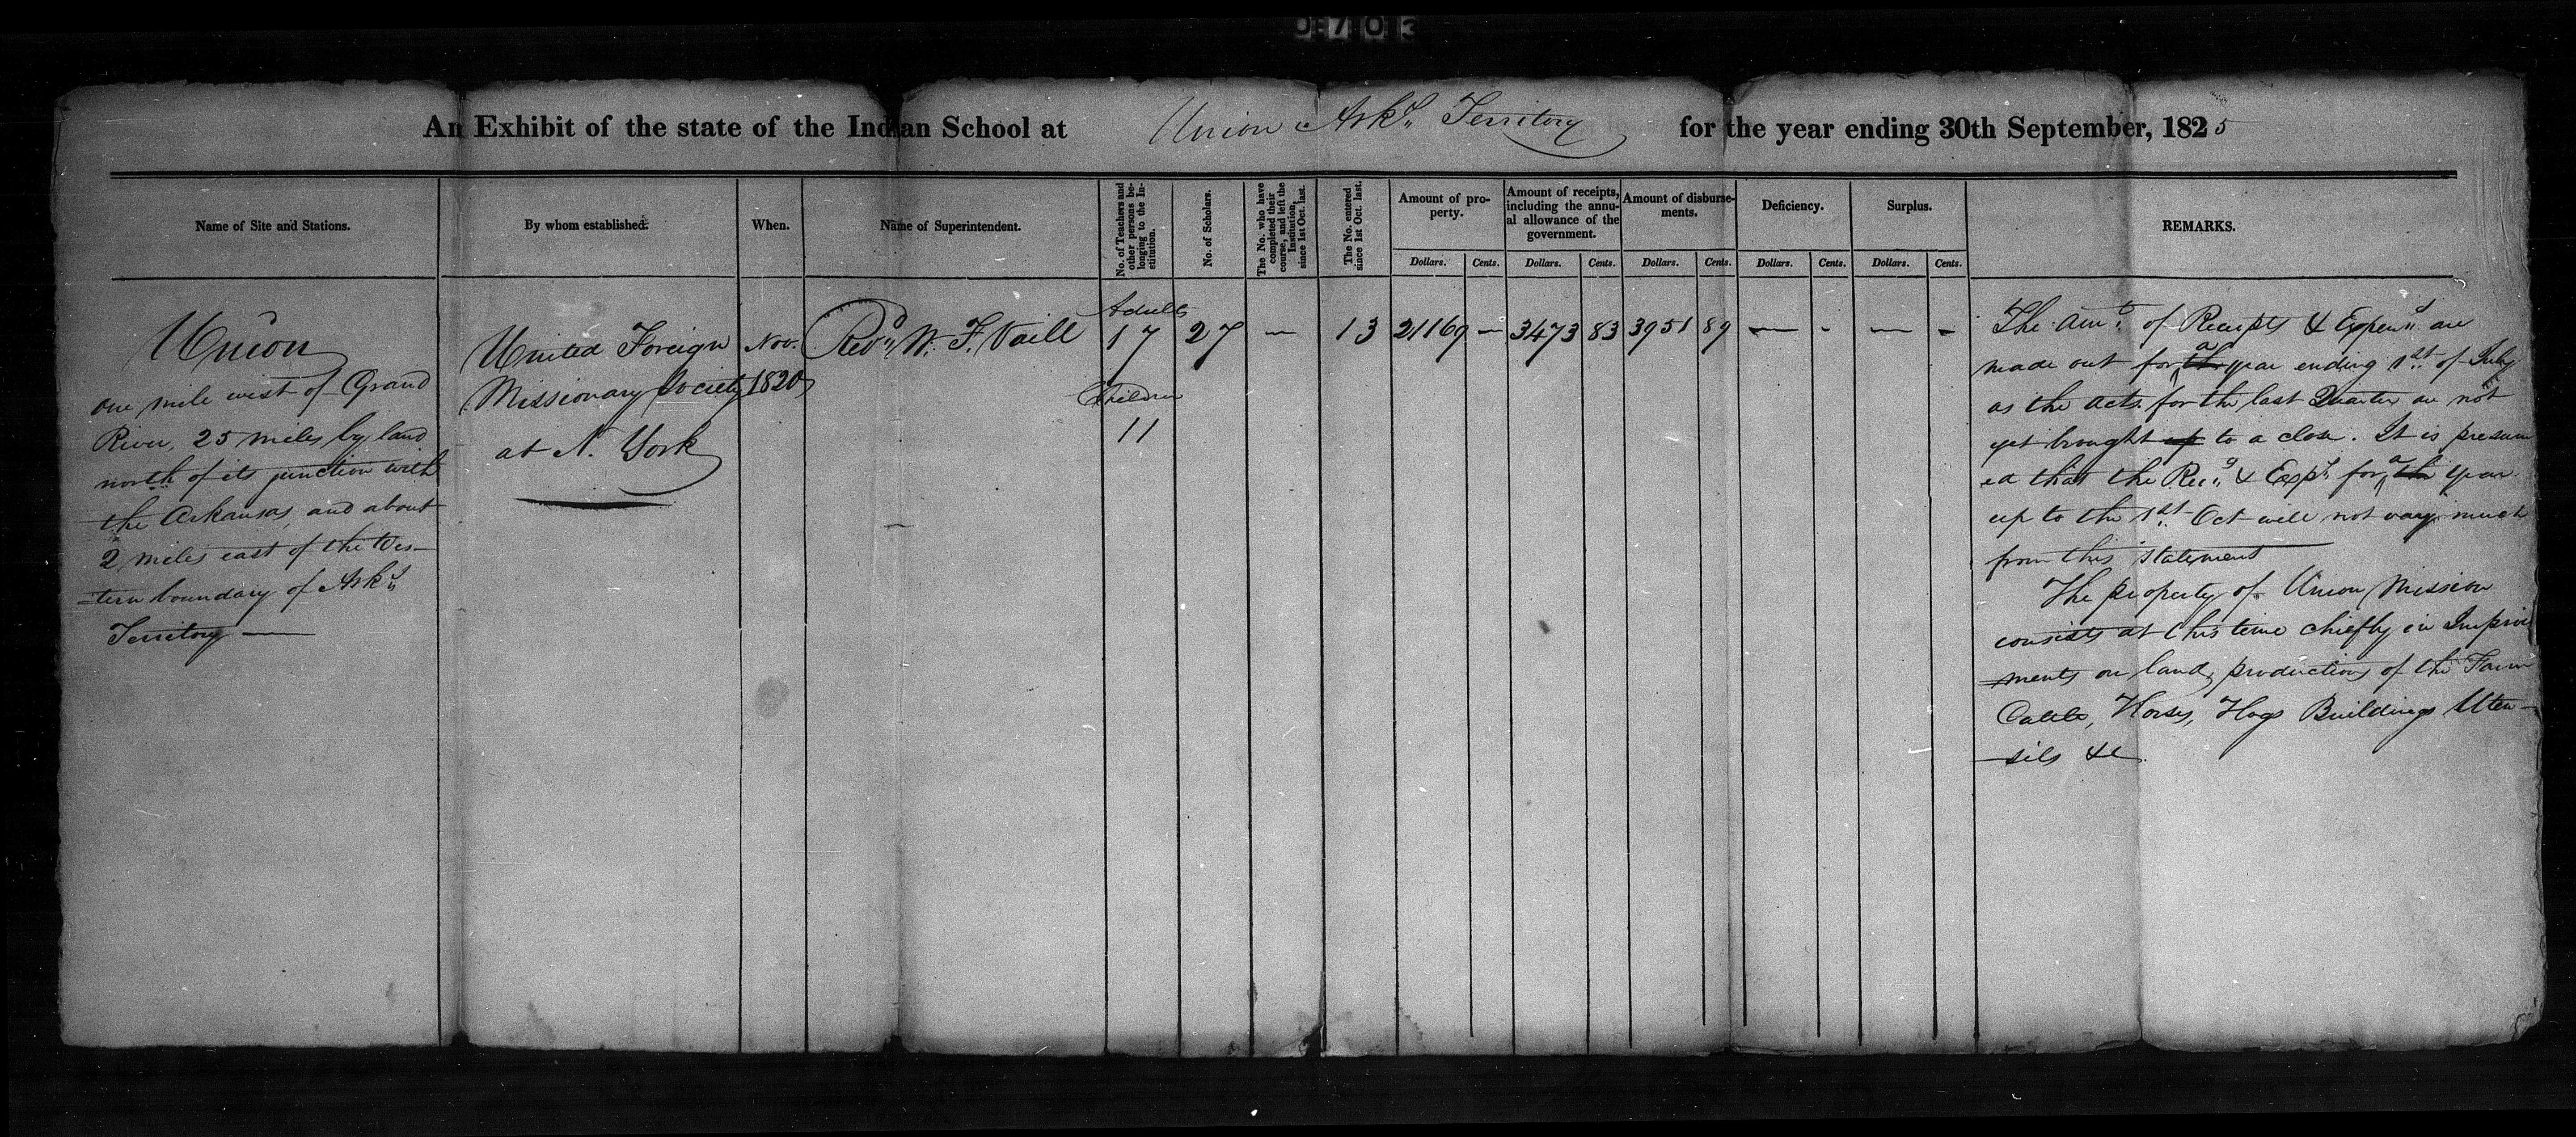 0703
An Exhibit of the state of the Indian School at Union Arks. Territory for the year ending 30th September, 1825
Name of Site and Stations.
By whom established.
When.
Name of Superintendent.
No. of Teachers and other persons belonging to the Institution.
No. of Scholars.
The No. who have completed their course, and left the Institution, since 1st Oct. last.
The No. entered since 1st Oct. last.
Amount of property.
Amount of receipts, including the annual allowance of the government.
Amount of disbursements.
Deficiency.
Surplus.
REMARKS.
Dollars. Cents. Dollars. Cents. Dollars. Cents. Dollars. Cents. Dollars. Cents.
Union
one mile west of Grand
River, 25 miles by land
north of its junction with
the Arkansas, and about
2 miles east of the Wes-
-tern boundary of Arks.
Territory —
United Foreign
Missionary Society
at N. York
Nov.
1820
Revd. W. F. Vaill
Adults
17
Children
11
27
—
13
21169 —
3473 83
3951 89
— -
— -
The amt. of Receipts & Expends. are
made out for a the year ending 1st. of July
as the acts. for the last Quarter are not
yet brought up to a close. It is presum
ed that the Recs. & Exps. for a the year
up to the 1st. Oct will not vary much
from this statement
The property of Union Mission
consists at this time chiefly in Improve
=ments on land, productions of the Farm
Cattle, Horses, Hogs Buildings Uten-
-sils &c